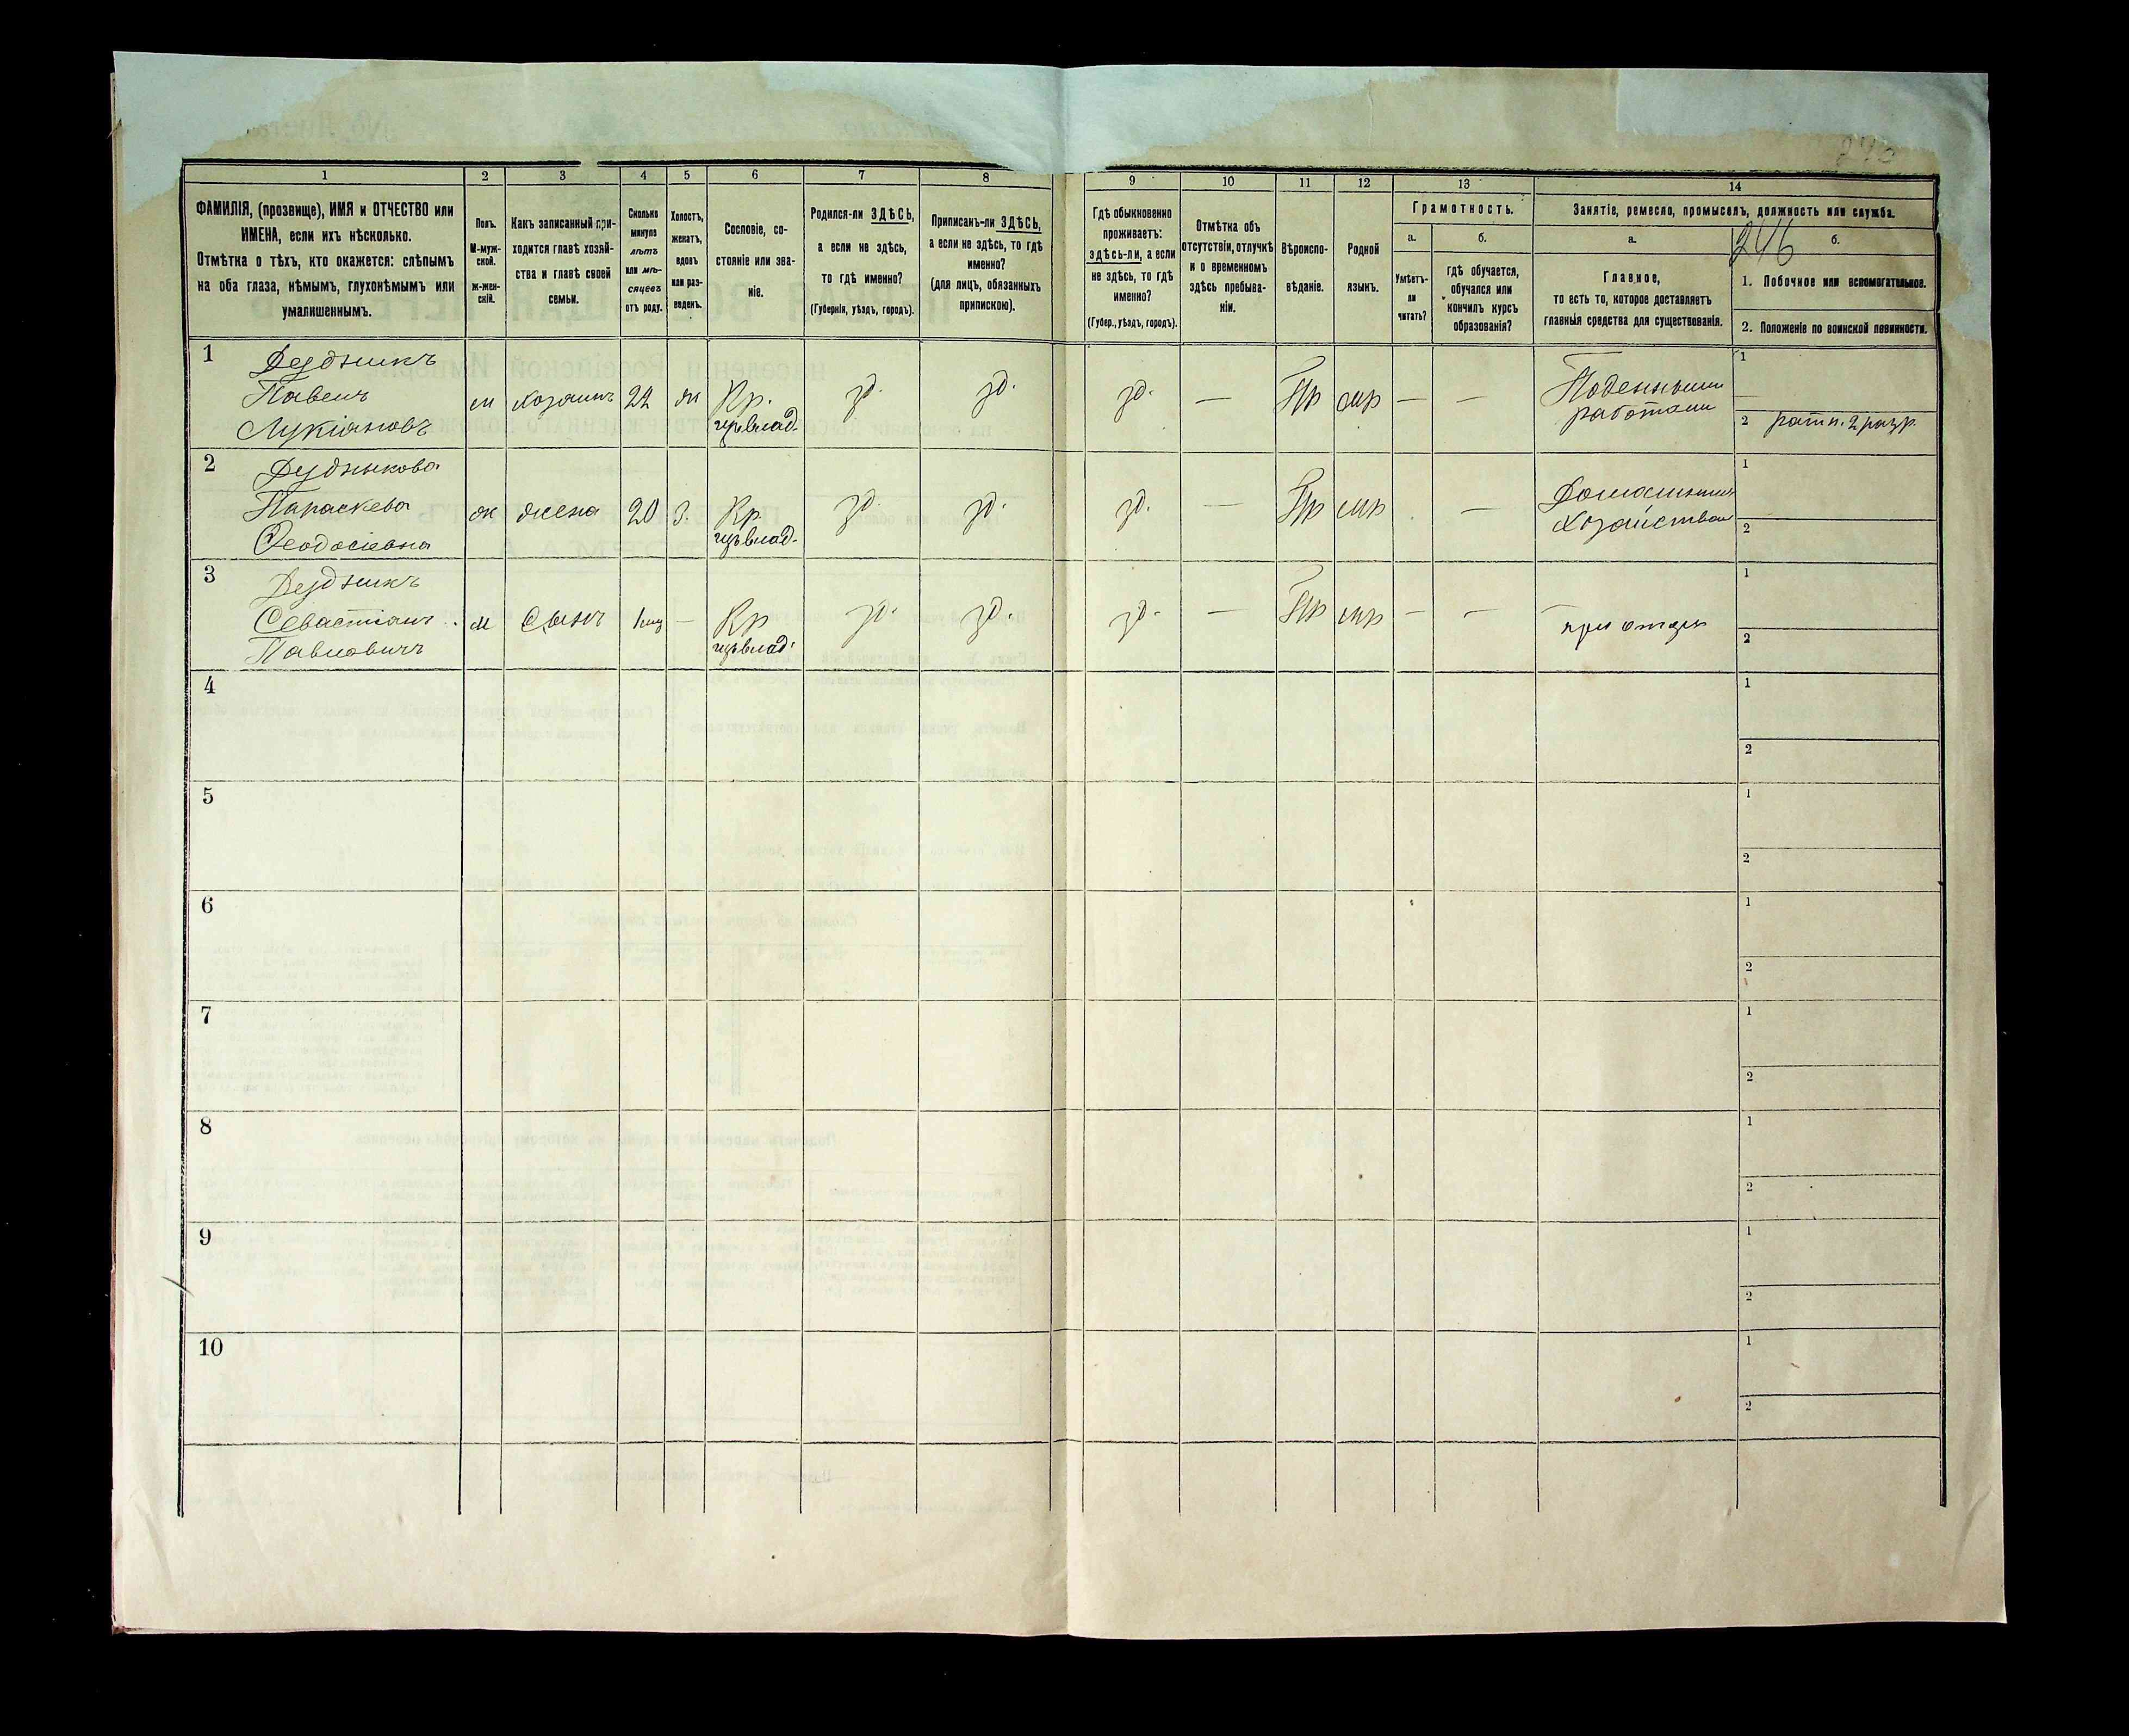 1 2 3 4 5 6 7 8 9 10 11 12 13 14
ФАМИЛІЯ, (прозвище), ИМЯ и ОТЧЕСТВО или
ИМЕНА, если ихъ нѣсколько.
Отмѣтка о тѣхъ, кто окажется: слѣпымъ
на оба глаза, нѣмымъ, глухонѣмымъ или
умалишеннымъ.
Полъ.
М-муж-
ской.
Ж-жен-
скій.
Какъ записанный при-
ходится главѣ хозяй-
ства и главѣ своей
семьи.
Сколько
минуло
лѣтъ
или мѣ-
сяцевъ
отъ роду.
Холостъ,
женатъ,
вдовъ
или раз-
веденъ.
Сословіе, со-
стояніе или зва-
ніе.
Родился-ли ЗДѢСЬ,
а если не здѣсь,
то гдѣ именно?
(Губернія, уѣздъ, городъ).
Приписанъ-ли ЗДѢСЬ,
а если не здѣсь, то гдѣ
именно?
(для лицъ, обязанныхъ
припискою).
Гдѣ обыкновенно
проживаетъ:
здѣсь-ли, а если
не здѣсь, то гдѣ
именно?
(Губер., уѣздъ, городъ).
Отмѣтка объ
отсутствіи, отлучкѣ
и о временномъ
здѣсь пребыва-
ніи.
Вѣроиспо-
вѣданіе.
Родной
языкъ.
Грамотность.
а.
Умѣетъ-
ли
читать?
б.
гдѣ обучается,
обучался или
кончилъ курсъ
образованія?
Занятіе, ремесло, промыселъ, должность или служба.
а.
Главное,
то есть то, которое доставляетъ
главныя средства для существованія.
246
б.
1. Побочное или вспомогательное.
2. Положеніе по воинской повинности.
1 Дудникъ
Павелъ
Лукіановъ
м хозяинъ 22 ж Кр.
зд. зд. зд. — Пр мр — —
Поденными
работами
1
2 ратн. 2 разр.
2 Дудникова
Параскева
Феодосіевна
ж жена 20 з. Кр.
зд. зд. зд. — Пр мр —
Домашнимъ
хозяйствомъ
1
2
3 Дудникъ
Севастіанъ
Павловичъ
м Сынъ 1 мц — Кр
зд. зд. зд. — Пр мр — —
при отцѣ
1
2
4
1
2
5
1
2
6
1
2
7
1
2
8
1
2
9
1
2
10
1
2